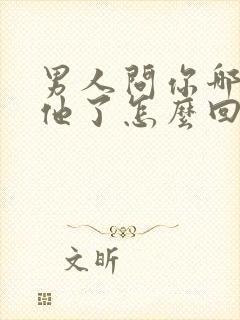 男人問你哪
他了怎麼回
文昕